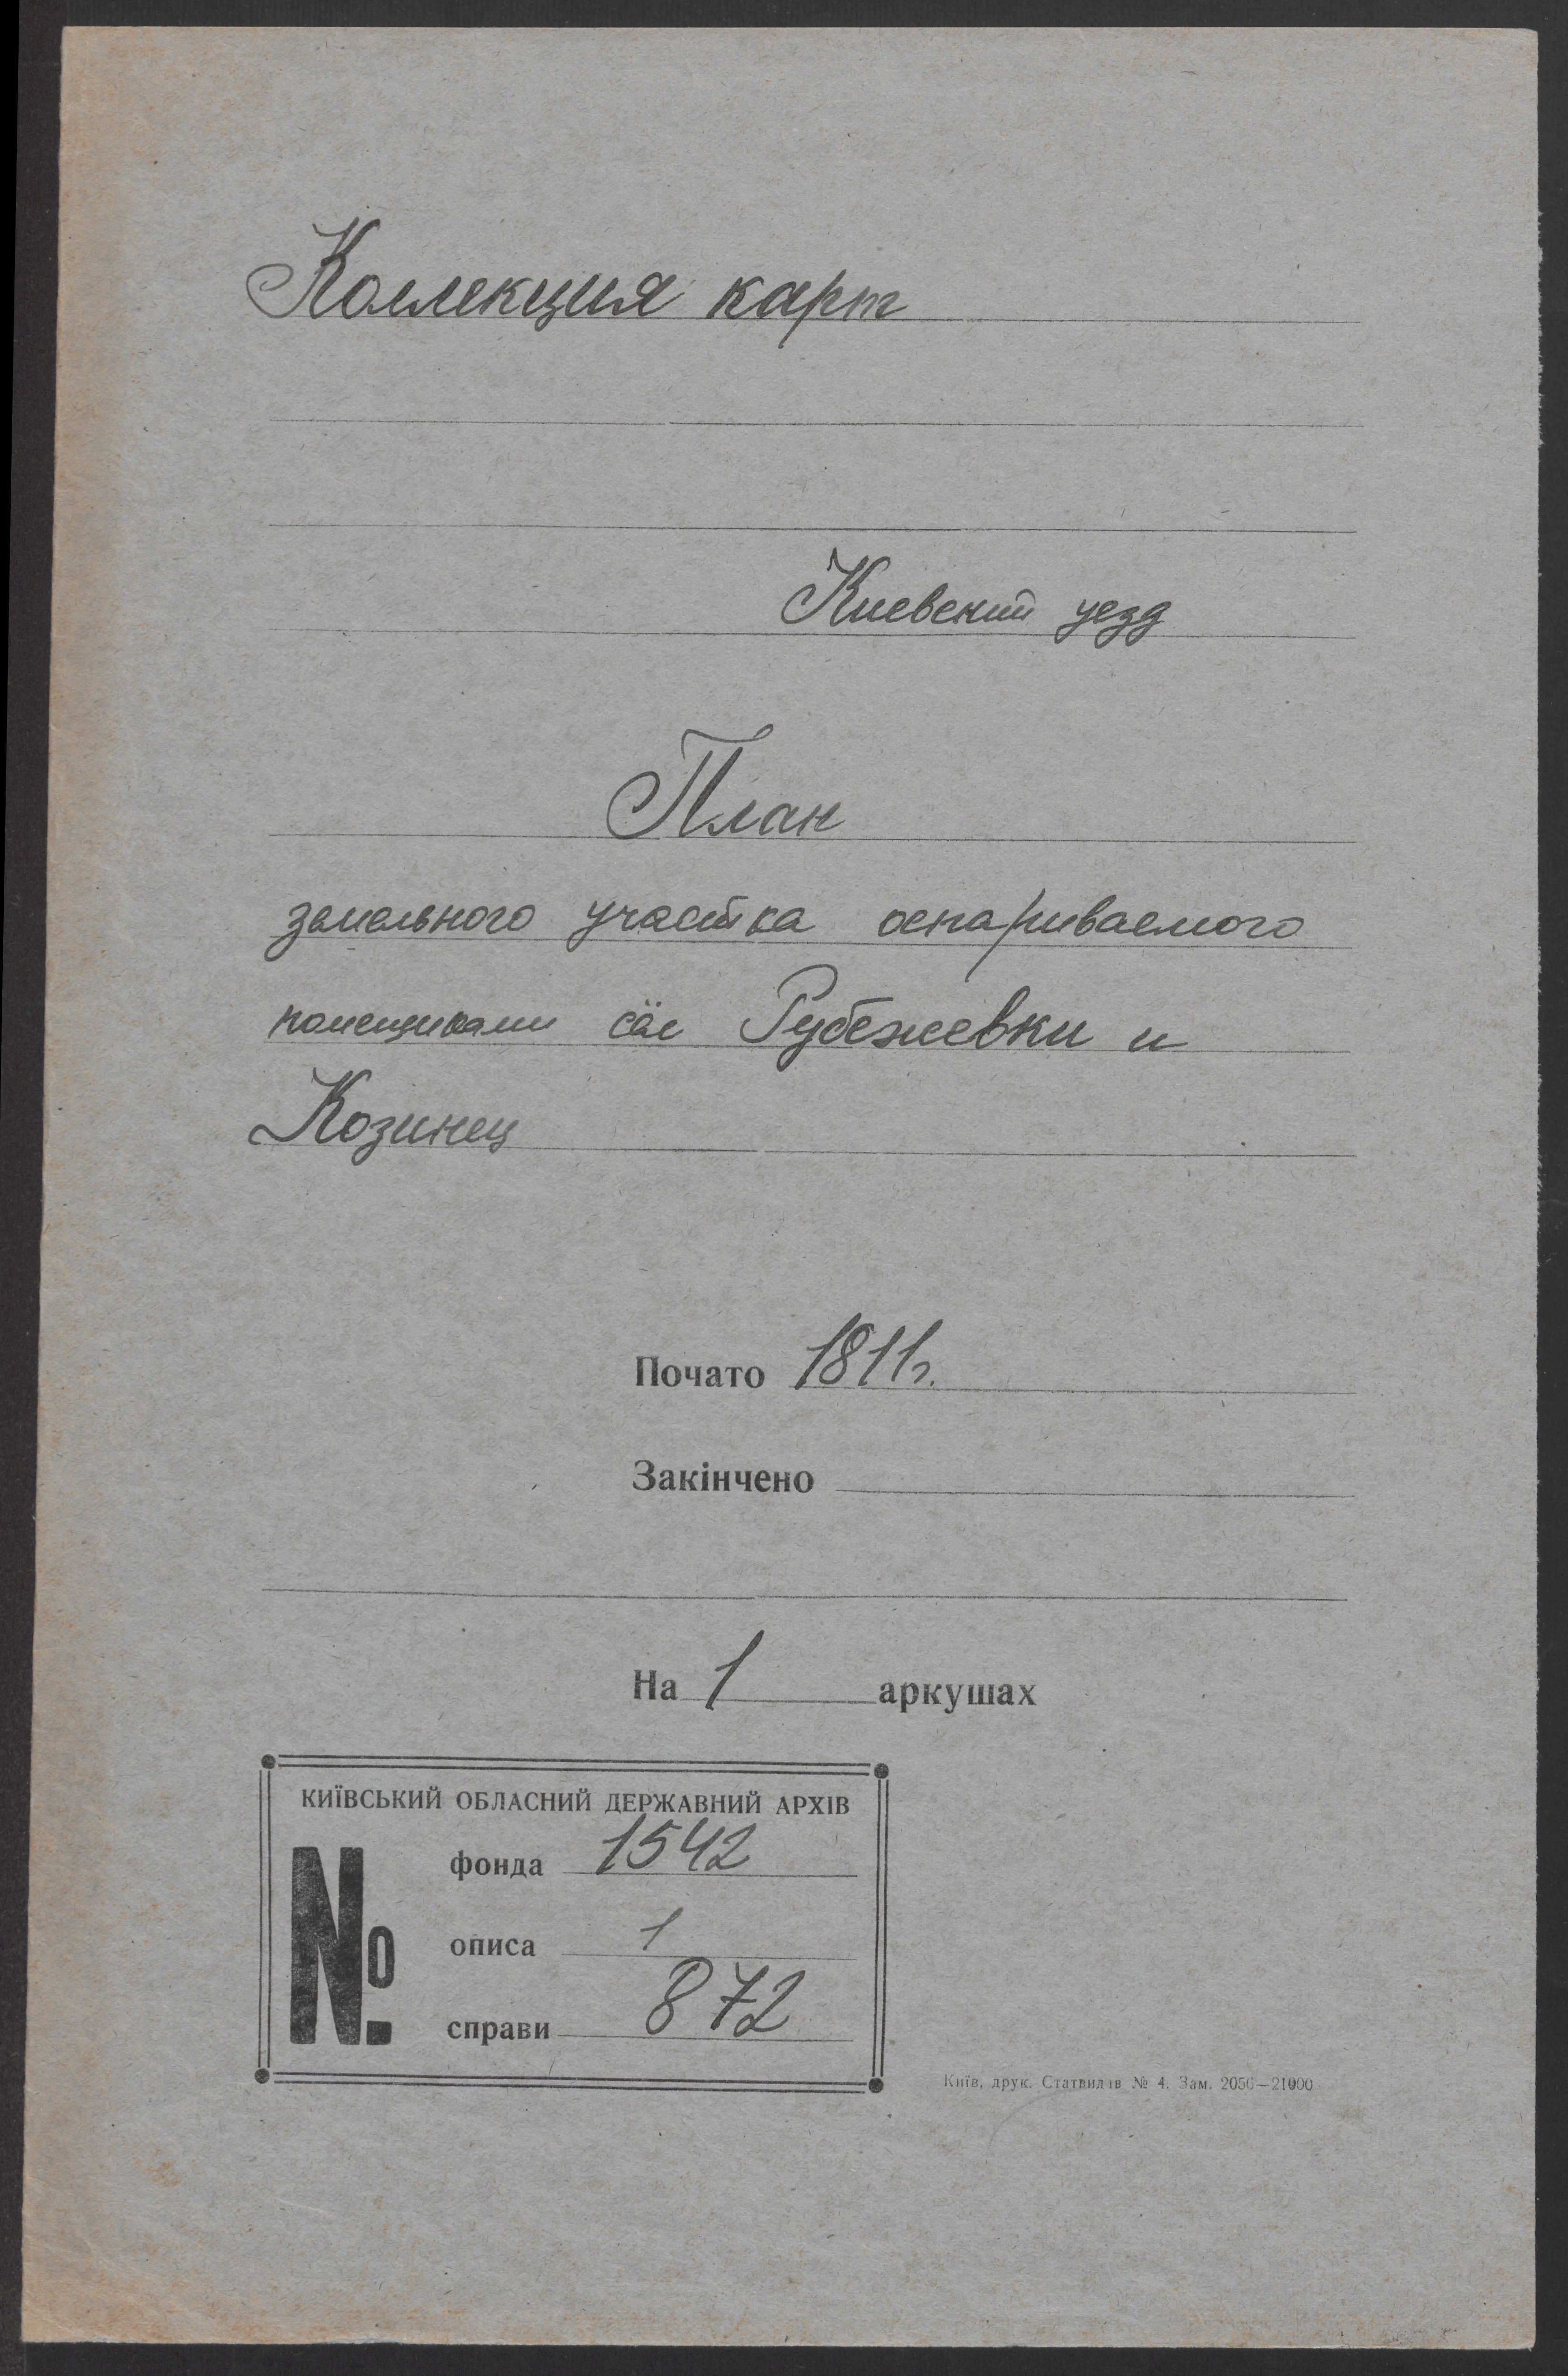 Коллекция карт
Киевский уезд
План
земельного участка оспариваемого
помещиками сёл Рубежевки и
Козинец
Почато 1811г.
Закінчено
На 1 аркушах
КИЇВСЬКИЙ ОБЛАСНИЙ ДЕРЖАВНИЙ АРХІВ
№
фонда 1542
описа 1
справи 872
Київ, друк. Статвидів № 4. Зам. 2050—21000